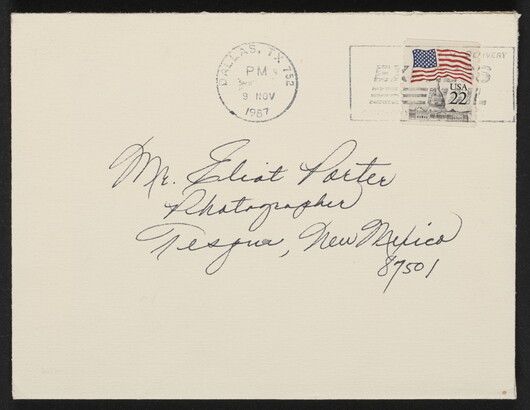 DALLAS, TX 752
PM
9 NOV
1987
USA
22
Mr. Eliot Porter
Photographer
Tesque, New Mexico
87501